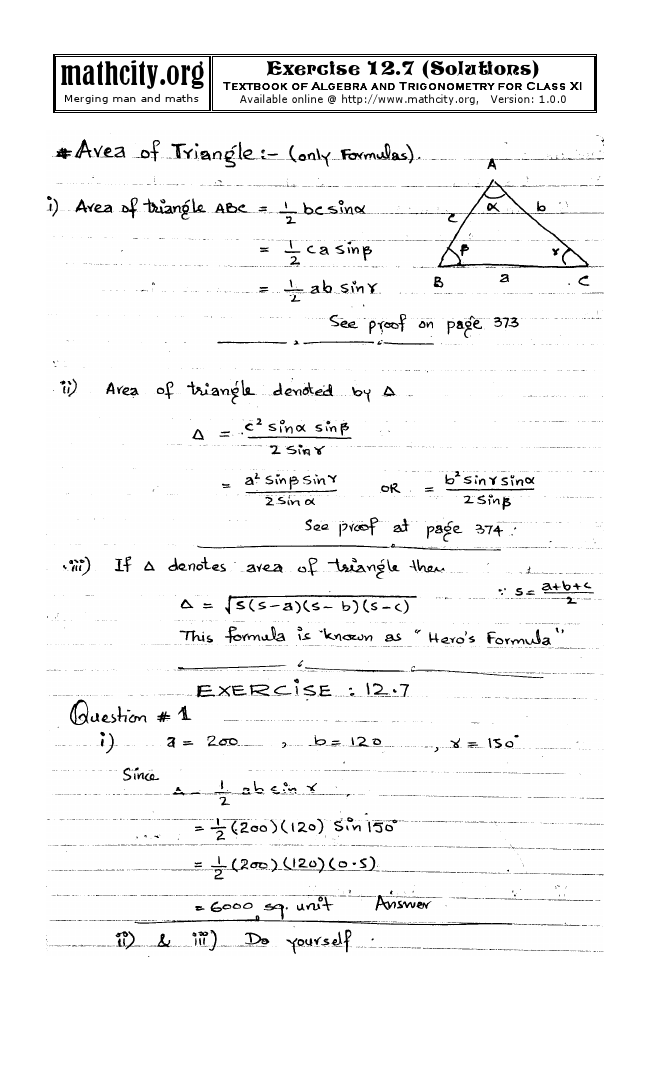 mathcity.org
Merging man and maths
Exercise 12.7 (Solutions)
TEXTBOOK OF ALGEBRA AND TRIGONOMETRY FOR CLASS XI
Available online @ http://www.mathcity.org, Version: 1.0.0
# Area of Triangle :- (only Formulas).
A
α
b
c
β
γ
B
a
C
i) Area of triangle ABC = 1/2 bc sinα
= 1/2 ca sinβ
= 1/2 ab sinγ
See proof on page 373
ii) Area of triangle denoted by Δ
Δ = c² sinα sinβ / 2 sinγ
= a² sinβ sinγ / 2 sinα OR = b² sinγ sinα / 2 sinβ
See proof at page 374.
iii) If Δ denotes area of triangle then
∵ s = a+b+c / 2
Δ = √s(s-a)(s-b)(s-c)
This formula is known as "Hero's Formula"
EXERCISE : 12.7
Question # 1
i) a = 200 , b = 120 , γ = 150°
Since
Δ = 1/2 ab sin γ
= 1/2 (200)(120) Sin 150°
= 1/2 (200)(120)(0.5)
= 6000 sq. unit Answer
ii) & iii) Do yourself.